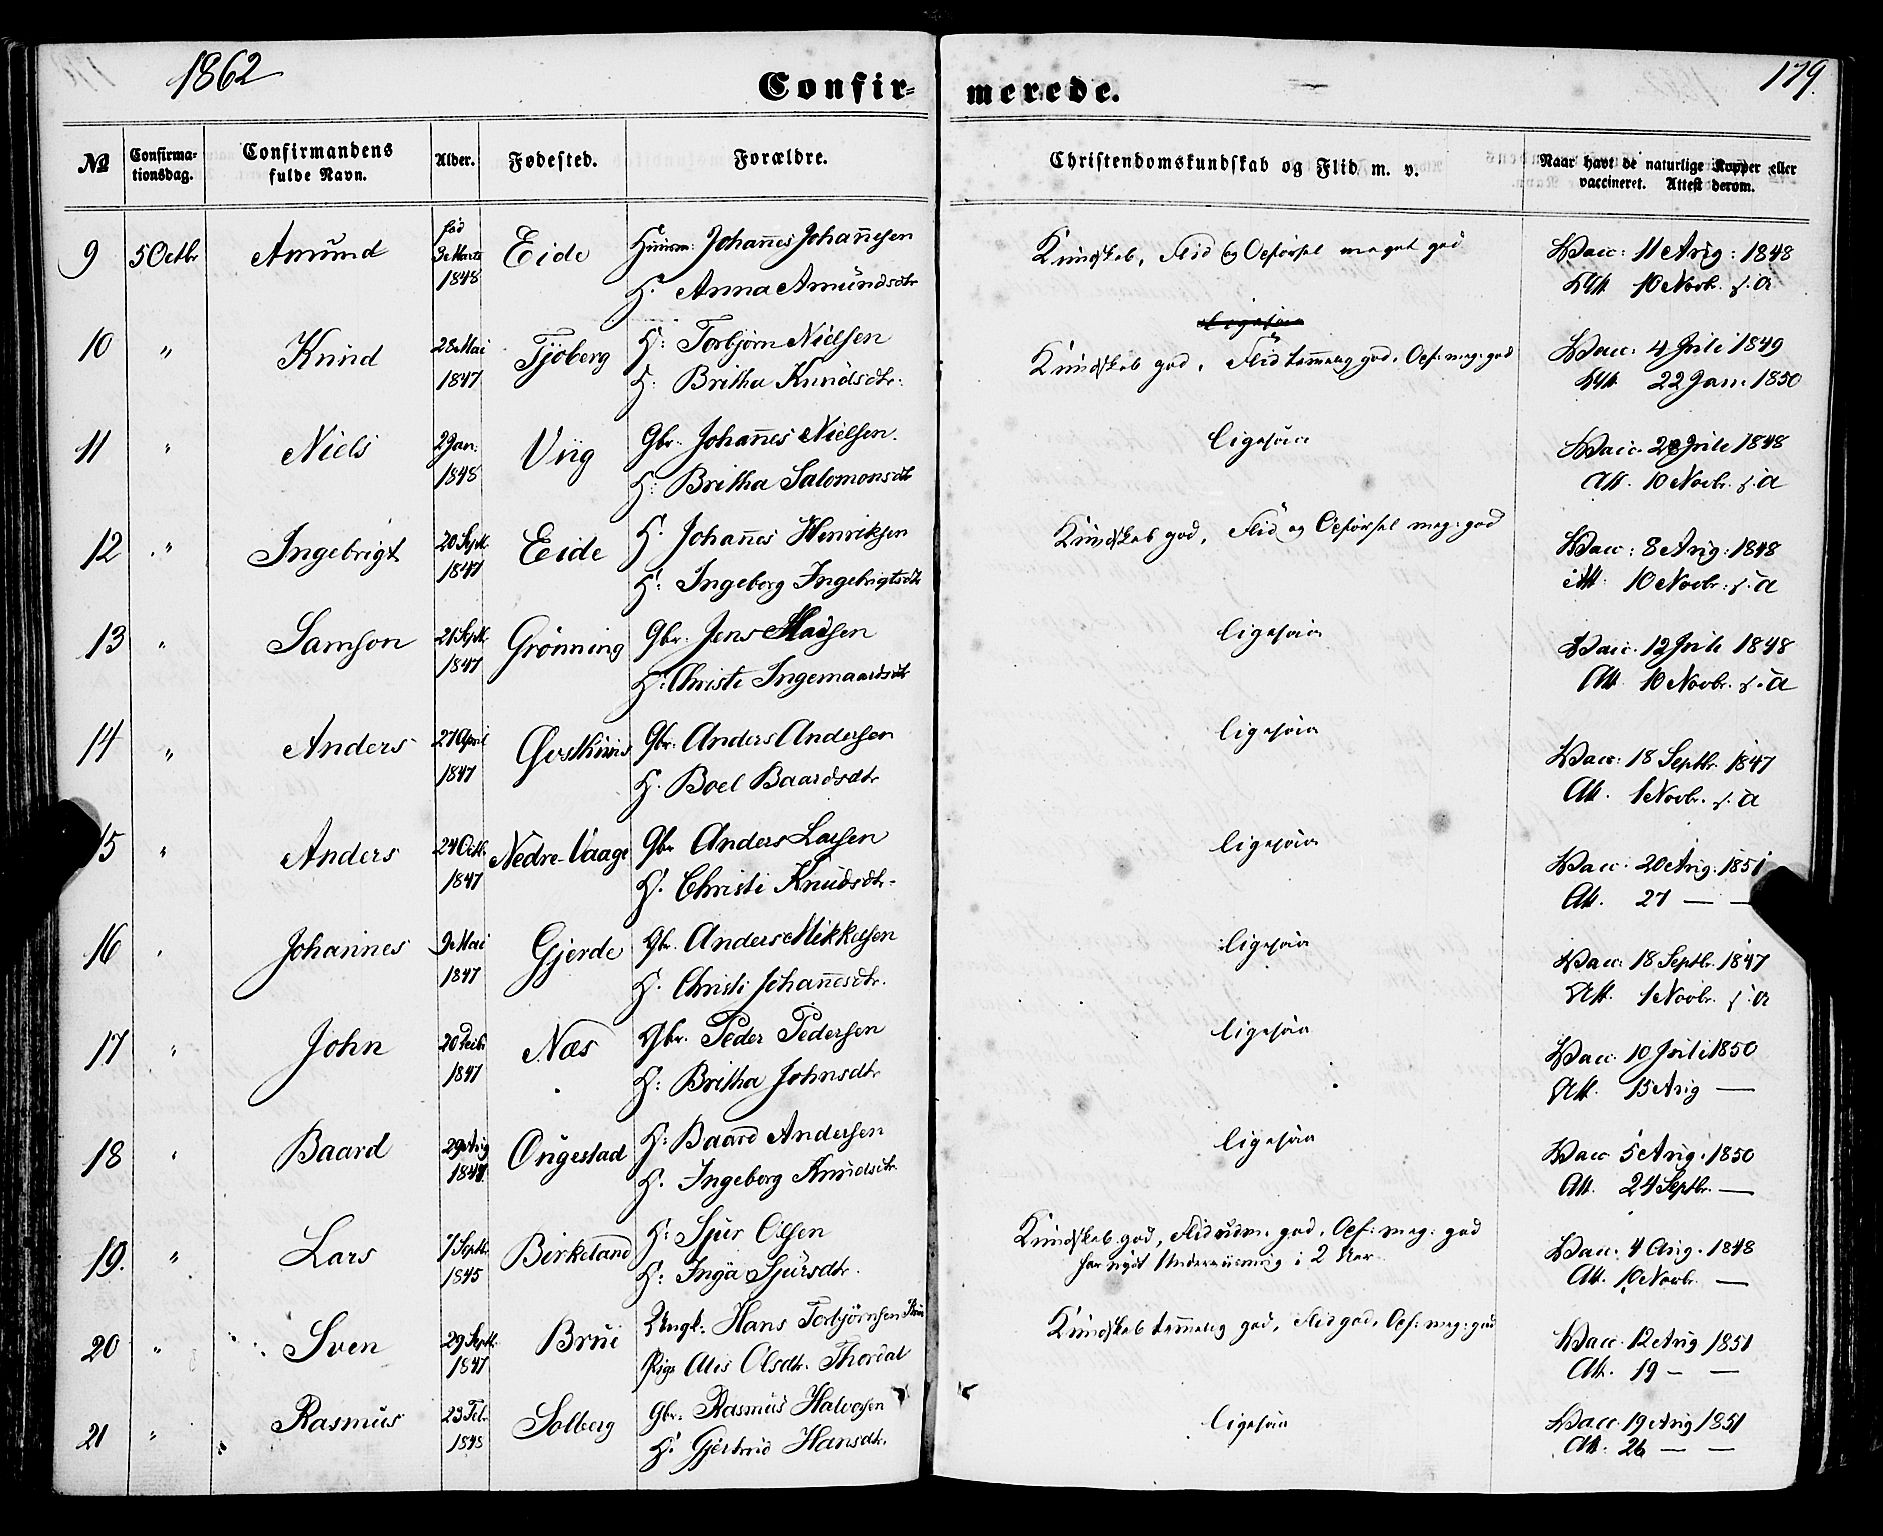 1862
Confir-
merede.
179.
№
Confirma-
tionsdag.
Confirmandens
fulde Navn.
Alder.
Fødested.
Forældre.
Christendomskundskab og Flid m. v.
Naar havt de naturlige Kopper eller
vaccineret. Attest derom.
9 5 Octbr Amund fød 3 Marts 1848 Eide Huusm: Johannes Johannesen
H. Anna Amundsdtr
Kundskab, Flid og Opførsel meget god
Vacc: 11 Aug: 1848
Att. 10 Novbr. s. A
10 " Knud 28 Mai 1847 Tjøberg H: Torbjørn Nielsen
H: Britha Knudsdtr.
ligesaa
Kundskab god, Flid temmelig god, Opf: meg: god
Vacc: 4 Juli 1849
Att. 22 Jan. 1850
11 " Niels 2 Jan: 1848 Viig Gbr. Johannes Nielsen.
H: Britha Salomonsdtr
ligesaa
Vacc. 28 Juli 1848
Att. 10 Novbr. s. A
12 " Ingebrigt 20 Septb. 1847 Eide H. Johannes Henriksen
H: Ingeborg Ingebrigtsdtr
Kundskab god, Flid og Opførsel meg: god
Vacc: 8 Aug: 1848
Att. 10 Novbr. s. A
13 " Samson 21 Septb. 1847 Grønning Gbr. Jens
H: Christi Ingemaardsdtr
ligesaa
Vacc. 12 Juli 1848
Att. 10 Novbr. s. A
14 " Anders 27 April 1847 Gbr: Anders Andersen
H. Boel Baardsdtr
ligesaa
Vacc: 18 Septbr. 1847
Att. 1 Novbr. s. A
15 " Anders 24 Octb. 1847 Nedre-Vaage Gbr Anders Larsen
H. Christi Knudsdtr.
ligesaa
Vacc: 20 Aug: 1851
Att. 27 — —
16 " Johannes 9 Mai 1847 Gjerde Gbr. Anders Mikkelsen
H. Christi Johannesdtr.
ligesaa
Vacc: 18 Septbr. 1847
Att. 1 Novbr. s. A
17 " John 20 1847 Næs Gbr. Peder Pedersen
H: Britha Johnsdtr
ligesaa
Vacc 10 Juli 1850
Att. 15 Aug —
18 " Baard 29 Aug 1847 Øugestad H: Baard Andersen
H. Ingeborg Knudsdtr.
ligesaa
Vacc 5 Aug. 1850
Att. 24 Septbr. —
19. " Lars 7 Septb. 1845 Birkeland H: Sjur Olsen
H: Inga Sjursdtr.
Kundskab god, Flid udm. god, Opf: meg: god
har nydt Underviisning i 2 Aar
Vacc. 4 Aug. 1848
Att. 10 Novbr. —
20 " Sven 29 Septb. 1847 Brui Ungk. Hans Torbjørnsen
Pige Olsdtr. Thordal
Kundskab temmelig god, Flid god, Opf: meg: god
Vacc. 12 Aug 1851
Att. 19 — —
21 " Rasmus 23 Feb. 1848 Solberg Gbr: Rasmus Halvorsen
H: Gjertrud Hansdtr.
ligesaa
Vacc. 19 Aug 1851
Att. 26 — —